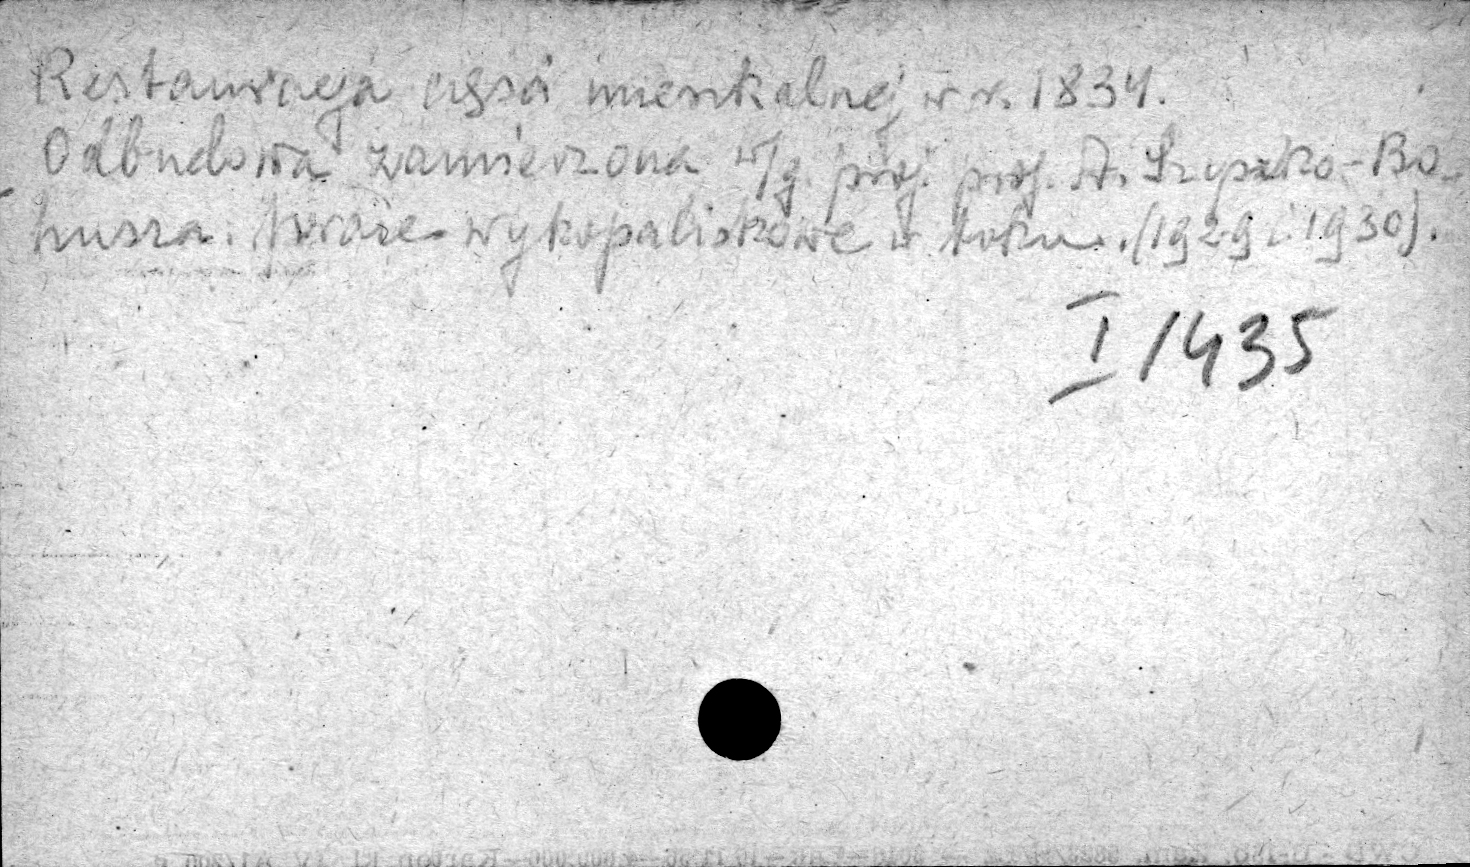 Restauracja części mieszkalnej w r. 1834.
Odbudowa zamierzona w/g. proj. prof. A. Szyszko-Bo-
husza. Prace wykopaliskowe w toku. (1929 i 1930).
I 1435